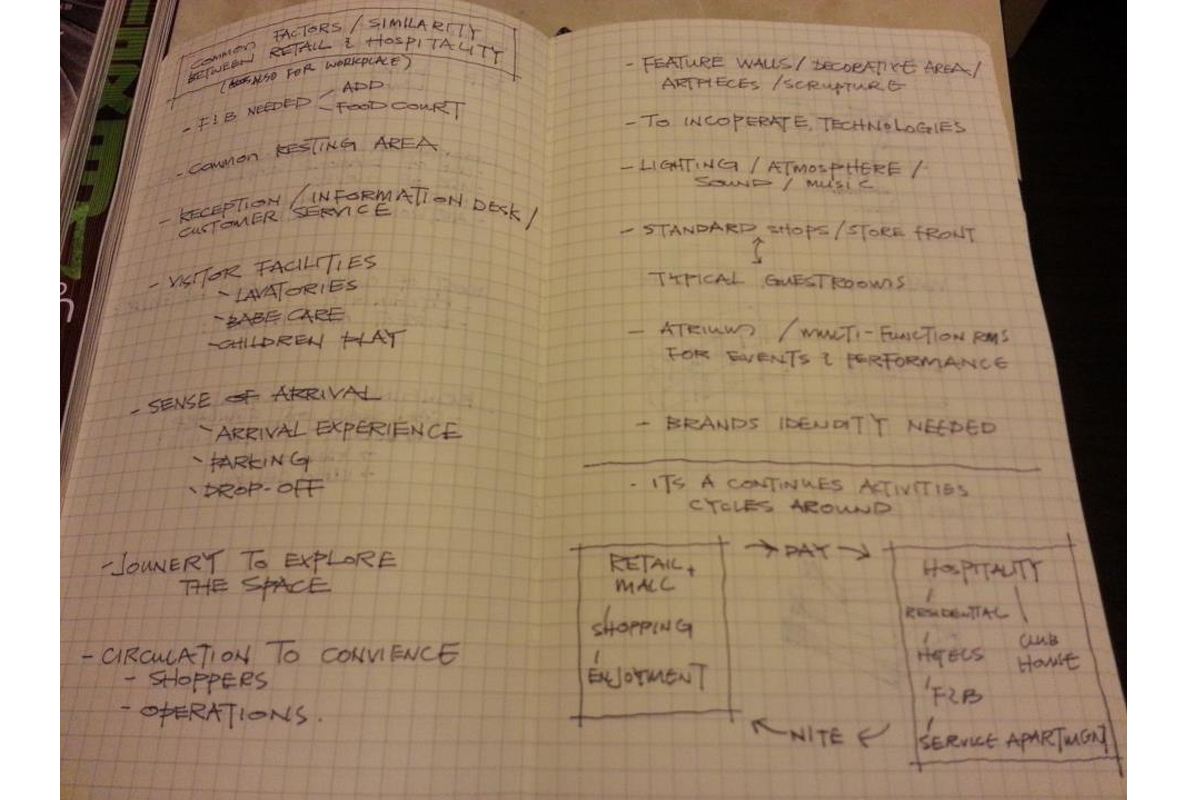 COMMON FACTORS / SIMILARITY
BETWEEN RETAIL & HOSPITALITY
(ALSO FOR WORKPLACE)
- F&B NEEDED - ADD
- FOOD COURT
- COMMON RESTING AREA
- RECEPTION / INFORMATION DESK /
CUSTOMER SERVICE
- VISITOR FACILITIES
- LAVATORIES
- BABE CARE
- CHILDREN PLAY
- SENSE OF ARRIVAL
- ARRIVAL EXPERIENCE
- PARKING
- DROP-OFF
- JOUNERY TO EXPLORE
THE SPACE
- CIRCULATION TO CONVIENCE
- SHOPPERS
- OPERATIONS.
- FEATURE WALLS / DECORATIVE AREA /
ARTPIECES / SCRUPTURE
- TO INCOPERATE TECHNOLOGIES
- LIGHTING / ATMOSPHERE /
SOUND / MUSIC
- STANDARD SHOPS / STORE FRONT
↕
TYPICAL GUESTROOMS
- ATRIUMS / MULTI-FUNCTION RMS
FOR EVENTS & PERFORMANCE
- BRANDS IDENDITY NEEDED
- ITS A CONTINUES ACTIVITIES
CYCLES AROUND
RETAIL,
MALL
SHOPPING
ENJOYMENT
→ DAY →
HOSPITALITY
RESIDENTIAL
HOTELS
CLUB
HOUSE
F&B
SERVICE APARTMENT
← NITE ←